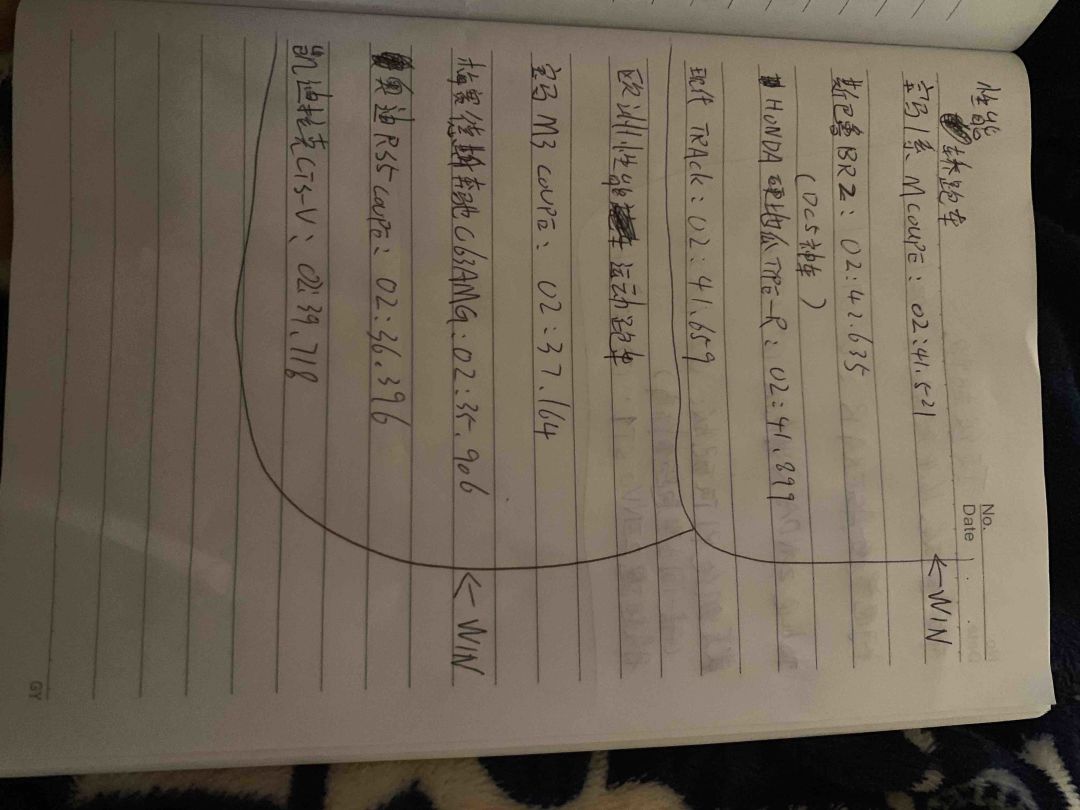 No.
Date
性能轿跑车
宝马1系 M COUPE: 02:41.521 ←WIN
斯巴鲁BRZ: 02:42.635
(DC5神车)
HONDA 硬地瓜 TYPE-R: 02:41.899
现代 TRACK: 02:41.659
欧洲性能运动跑车
宝马 M3 COUPE: 02:37.164
梅赛德斯奔驰 C63AMG: 02:35.906 ←WIN
奥迪RS5 COUPE: 02:36.396
凯迪拉克CTS-V: 02:39.718
GY